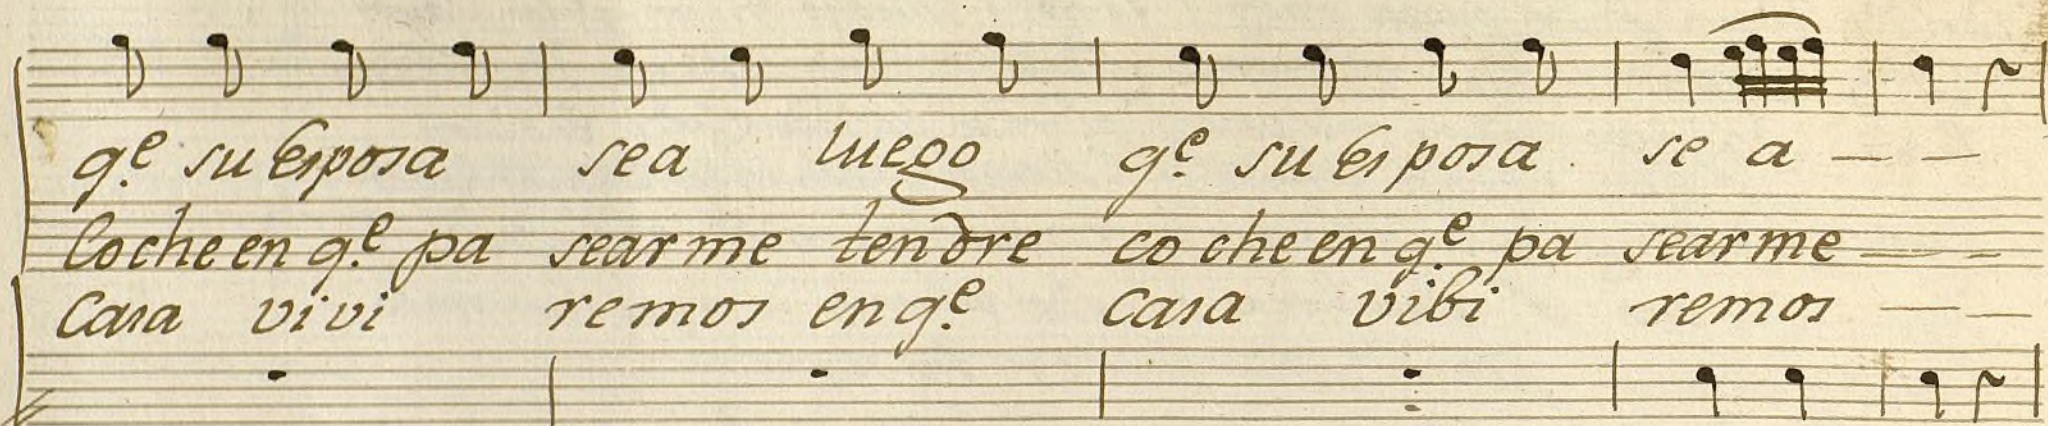 q.e su Esposa sea luego q.e su Esposa se a — —
Coche en q.e pa searme tendre co che en q.e pa searme — —
Casa vivi remos en q.e casa vibi remos — —